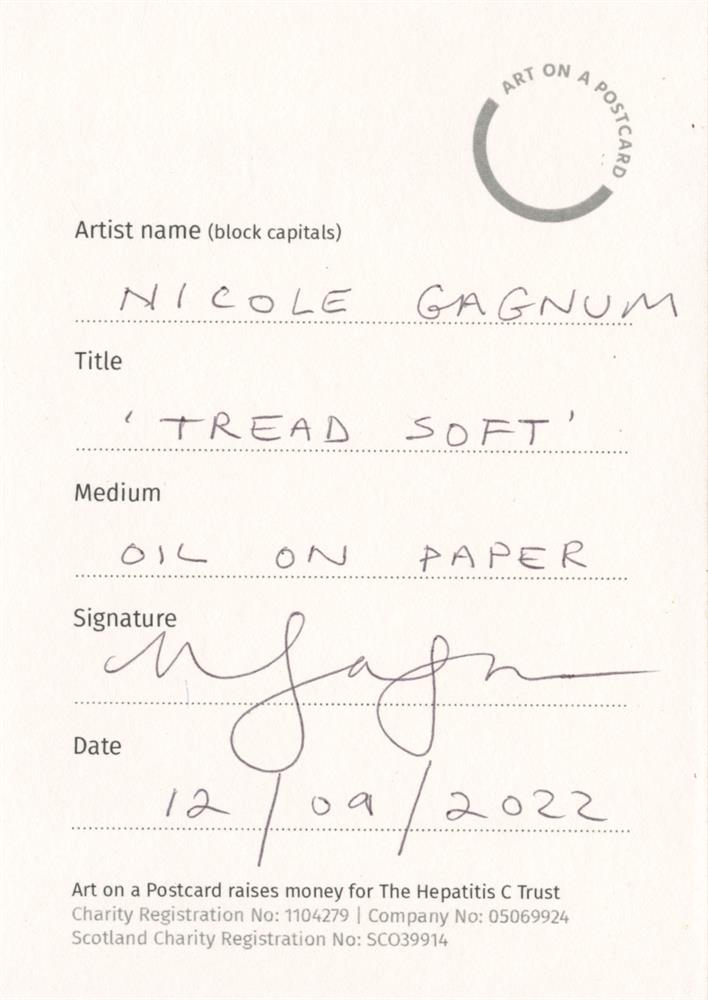 ART ON A POSTCARD
Artist name (block capitals)
NICOLE GAGNUM
Title
'TREAD SOFT'
Medium
OIL ON PAPER
Signature
Date
12/09/2022
Art on a Postcard raises money for The Hepatitis C Trust
Charity Registration No: 1104279 | Company No: 05069924
Scotland Charity Registration No: SCO39914